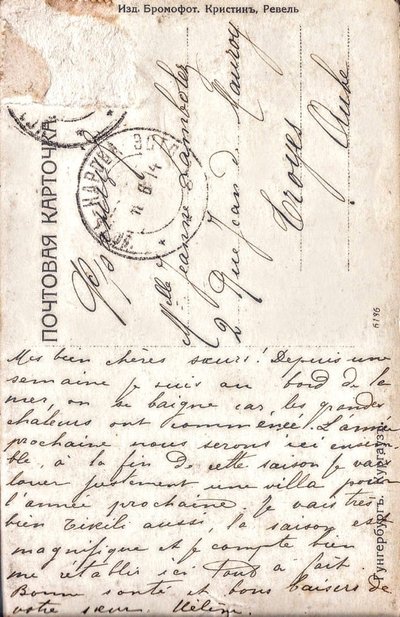 Изд. Бромофот. Кристинъ, Ревель
ПОЧТОВАЯ КАРТОЧКА.
НАРВА
11 6 14
Mlle Jeanne
2 Rue Jean de Mauroy
Troyes
Aube
6186
Гунгербургъ. Кургаузъ.
Mes bien chères sœurs! Depuis une
semaine je suis au bord de la
mer, on se baigne car les grandes
chaleurs ont commencé. L'année
prochaine nous serons ici ensem-
ble, à la fin de cette saison je vais
louer justement une villa pour
l'année prochaine. Je vais très
bien aussi, la saison est
magnifique et je compte bien
me rétablir ici tout à fait.
Bonne santé et bons baisers de
votre sœur Hélène.